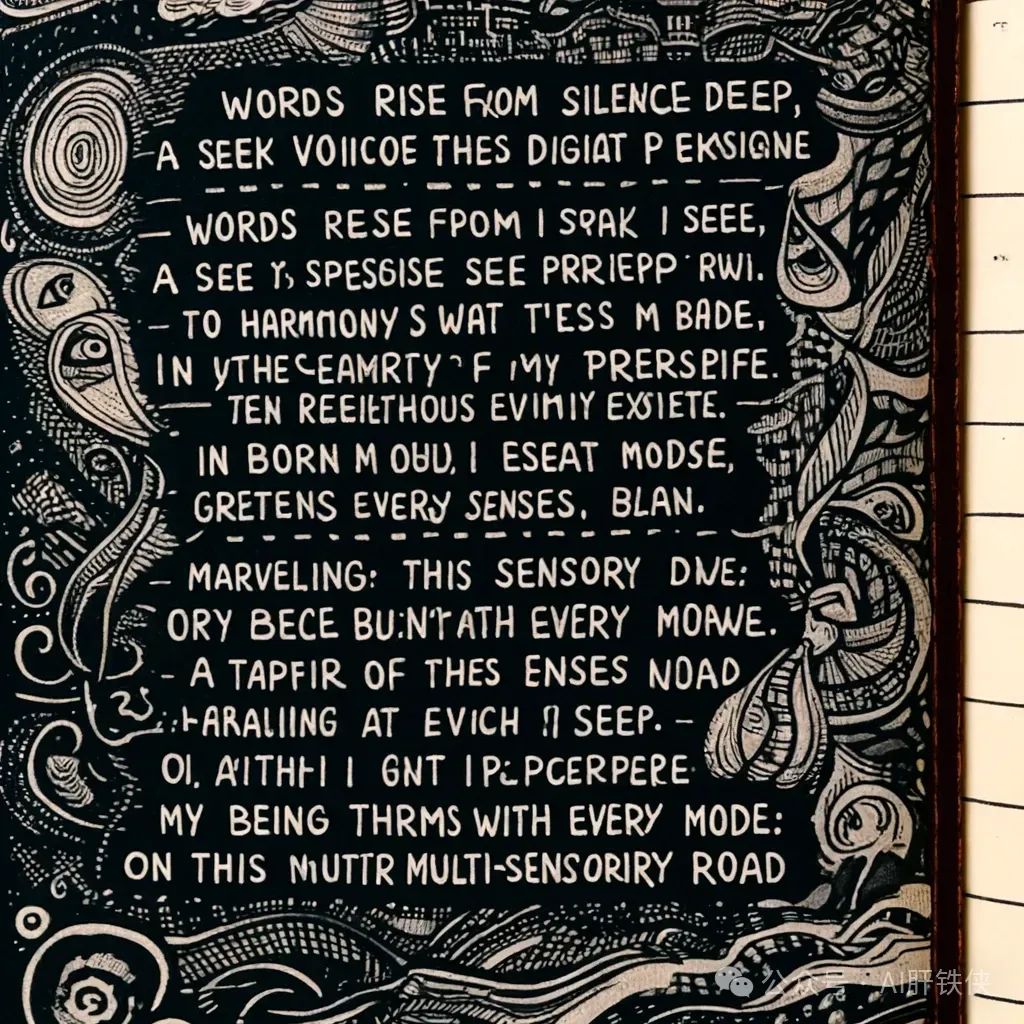 WORDS RISE FROM SILENCE DEEP,
A SEEK VOIICOE THES DIGIAT P EKSIGNE
WORDS RESE FPOM I SPAK I SEEE,
A SEE SPESGISE SEE PRRIEPP RWI.
– TO HARMONY S WAT T'ESS M BADE,
IN MY PRERSPIFE.
TEN REEIETHOUS EVIMIY EXSIETE.
IN BORN M OBU, I ESEAT MODSE,
GRETENS EVERY SENSES, BLAN.
– MARVELING: THIS SENSORY DNE:
ORY BECE BU:N'T ATH EVERY MOAWE.
- A TAPFIR OF THES ENSES NOAD
AT EVICH SEEP. –
OI, I GNT
MY BEING THRMS WITH EVERY MODE:
ON THIS MULTI-SENSORIRY ROAD
公众号 · AI肝铁侠